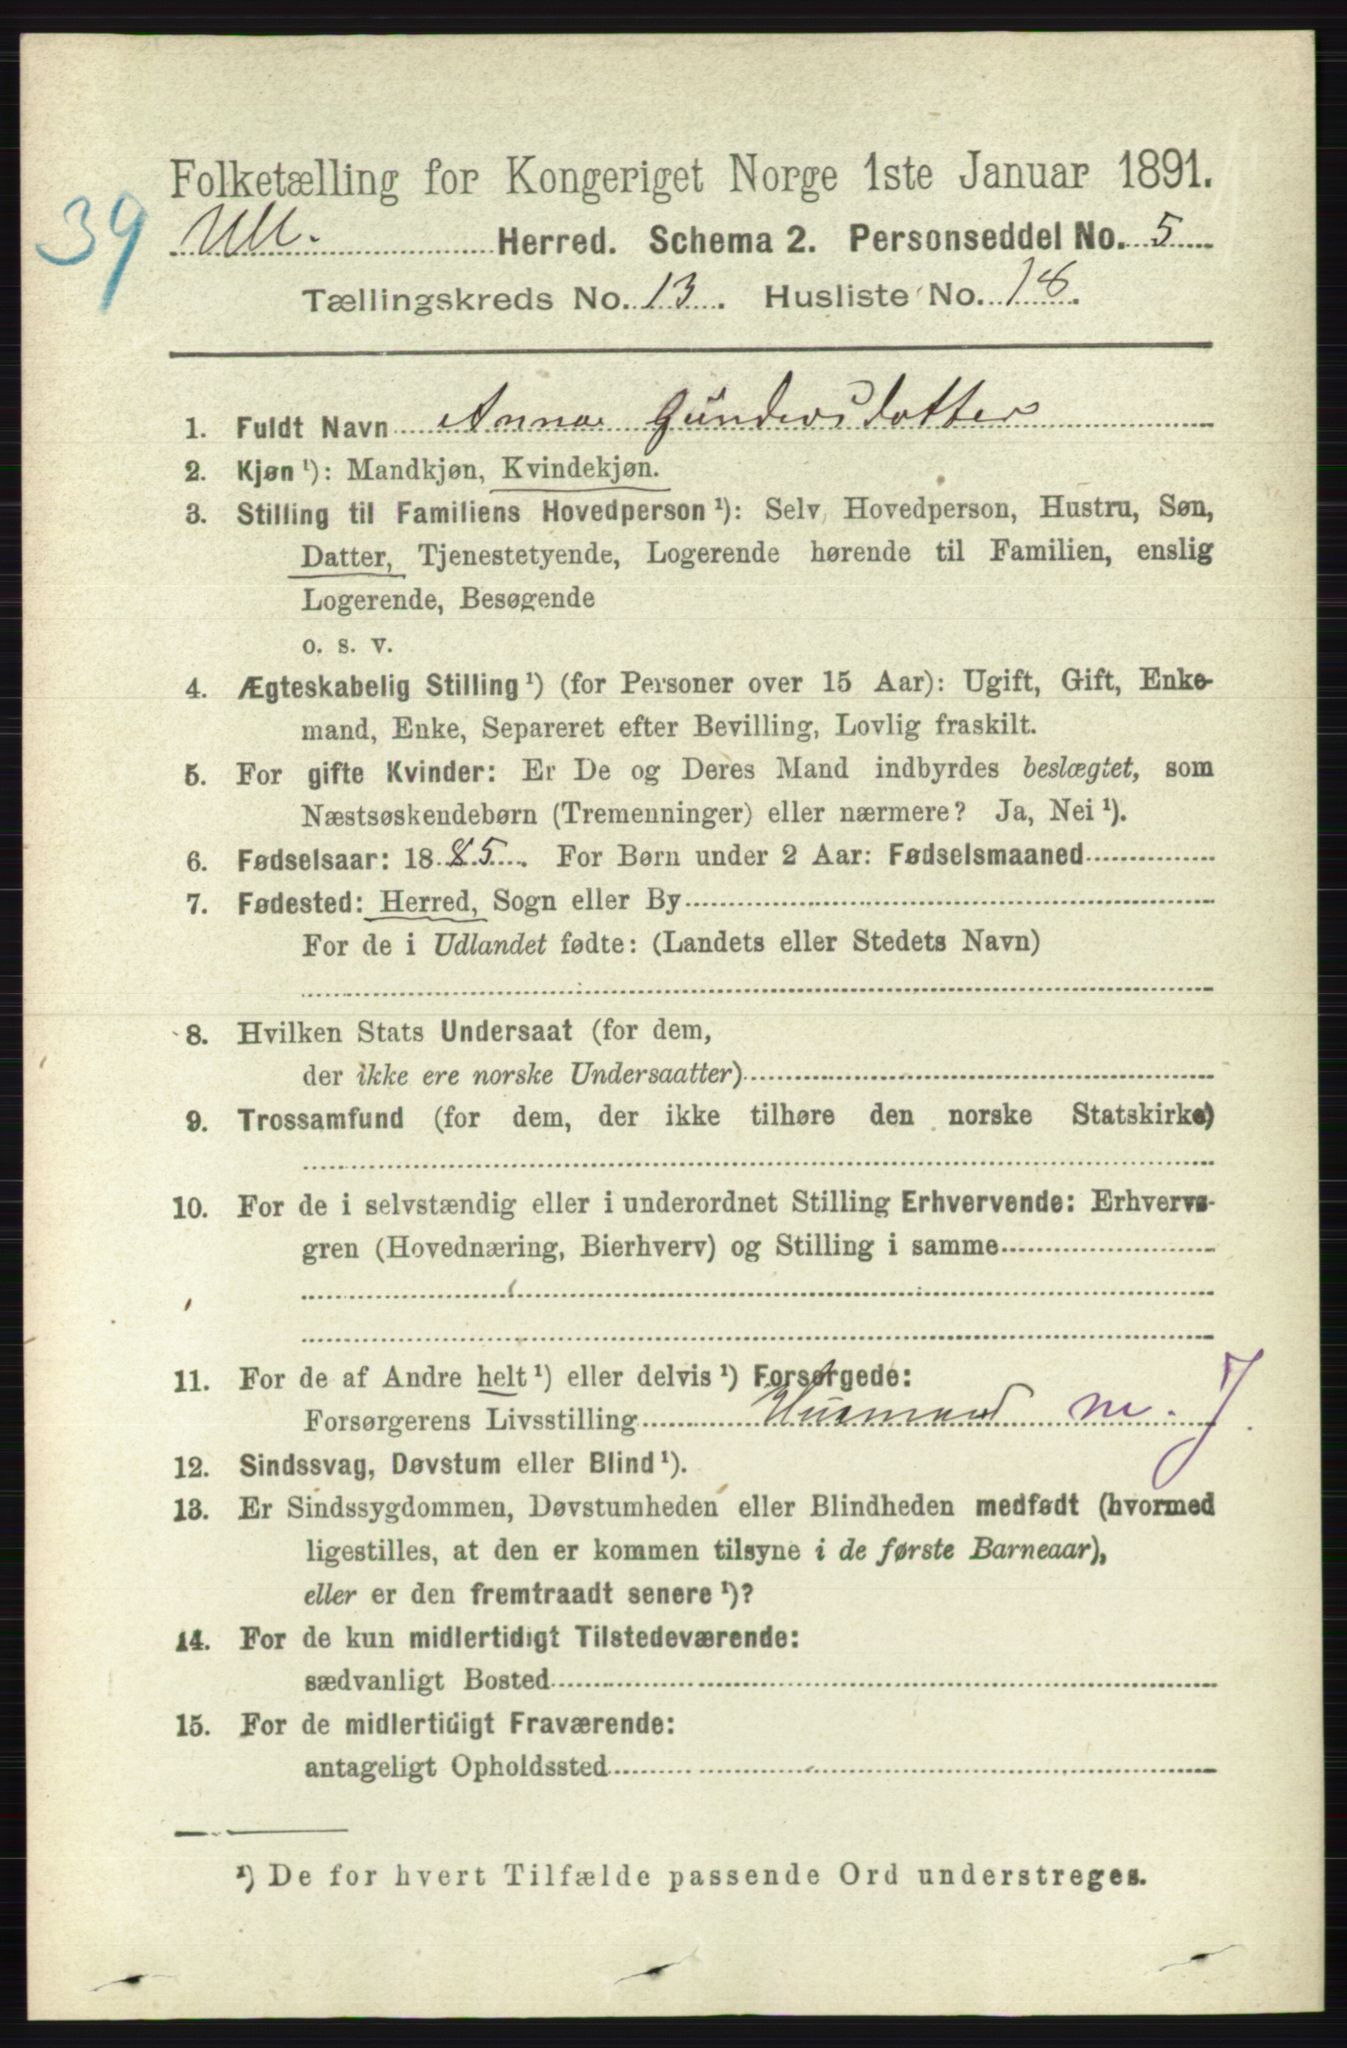 Folketælling for Kongeriget Norge 1ste Januar 1891.
39
Ull. Herred. Schema 2. Personseddel No. 5
Tællingskreds No. 13. Husliste No. 18.
1. Fuldt Navn Anna Gundersdatter
2. Kjøn ¹): Mandkjøn, Kvindekjøn.
3. Stilling til Familiens Hovedperson ¹): Selv Hovedperson, Hustru, Søn,
Datter, Tjenestetyende, Logerende hørende til Familien, enslig
Logerende, Besøgende
o. s. v.
4. Ægteskabelig Stilling ¹) (for Personer over 15 Aar): Ugift, Gift, Enke-
mand, Enke, Separeret efter Bevilling, Lovlig fraskilt.
5. For gifte Kvinder: Er De og Deres Mand indbyrdes beslægtet, som
Næstsøskendebørn (Tremenninger) eller nærmere? Ja, Nei ¹).
6. Fødselsaar: 1885. For Børn under 2 Aar: Fødselsmaaned
7. Fødested: Herred, Sogn eller By
For de i Udlandet fødte: (Landets eller Stedets Navn)
8. Hvilken Stats Undersaat (for dem,
der ikke ere norske Undersaatter)
9. Trossamfund (for dem, der ikke tilhøre den norske Statskirke)
10. For de i selvstændig eller i underordnet Stilling Erhvervende: Erhvervs-
gren (Hovednæring, Bierhverv) og Stilling i samme
11. For de af Andre helt ¹) eller delvis ¹) Forsørgede:
Forsørgerens Livsstilling Husmand m. J.
12. Sindssvag, Døvstum eller Blind ¹).
13. Er Sindssygdommen, Døvstumheden eller Blindheden medfødt (hvormed
ligestilles, at den er kommen tilsyne i de første Barneaar),
eller er den fremtraadt senere ¹)?
14. For de kun midlertidigt Tilstedeværende:
sædvanligt Bosted
15. For de midlertidigt Fraværende:
antageligt Opholdssted
¹) De for hvert Tilfælde passende Ord understreges.